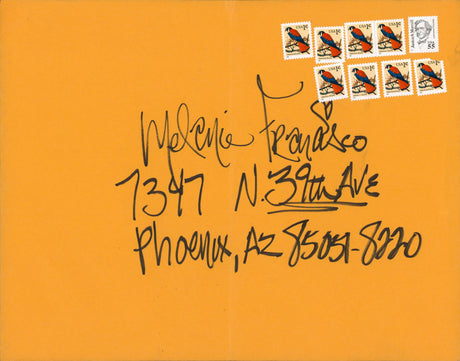 Melanie Francisco
7347 N. 39th AVE
Phoenix, AZ 85051-8220
USA 1c
USA 1c
USA 1c
USA 1c
55
USA 1c
USA 1c
USA 1c
USA 1c